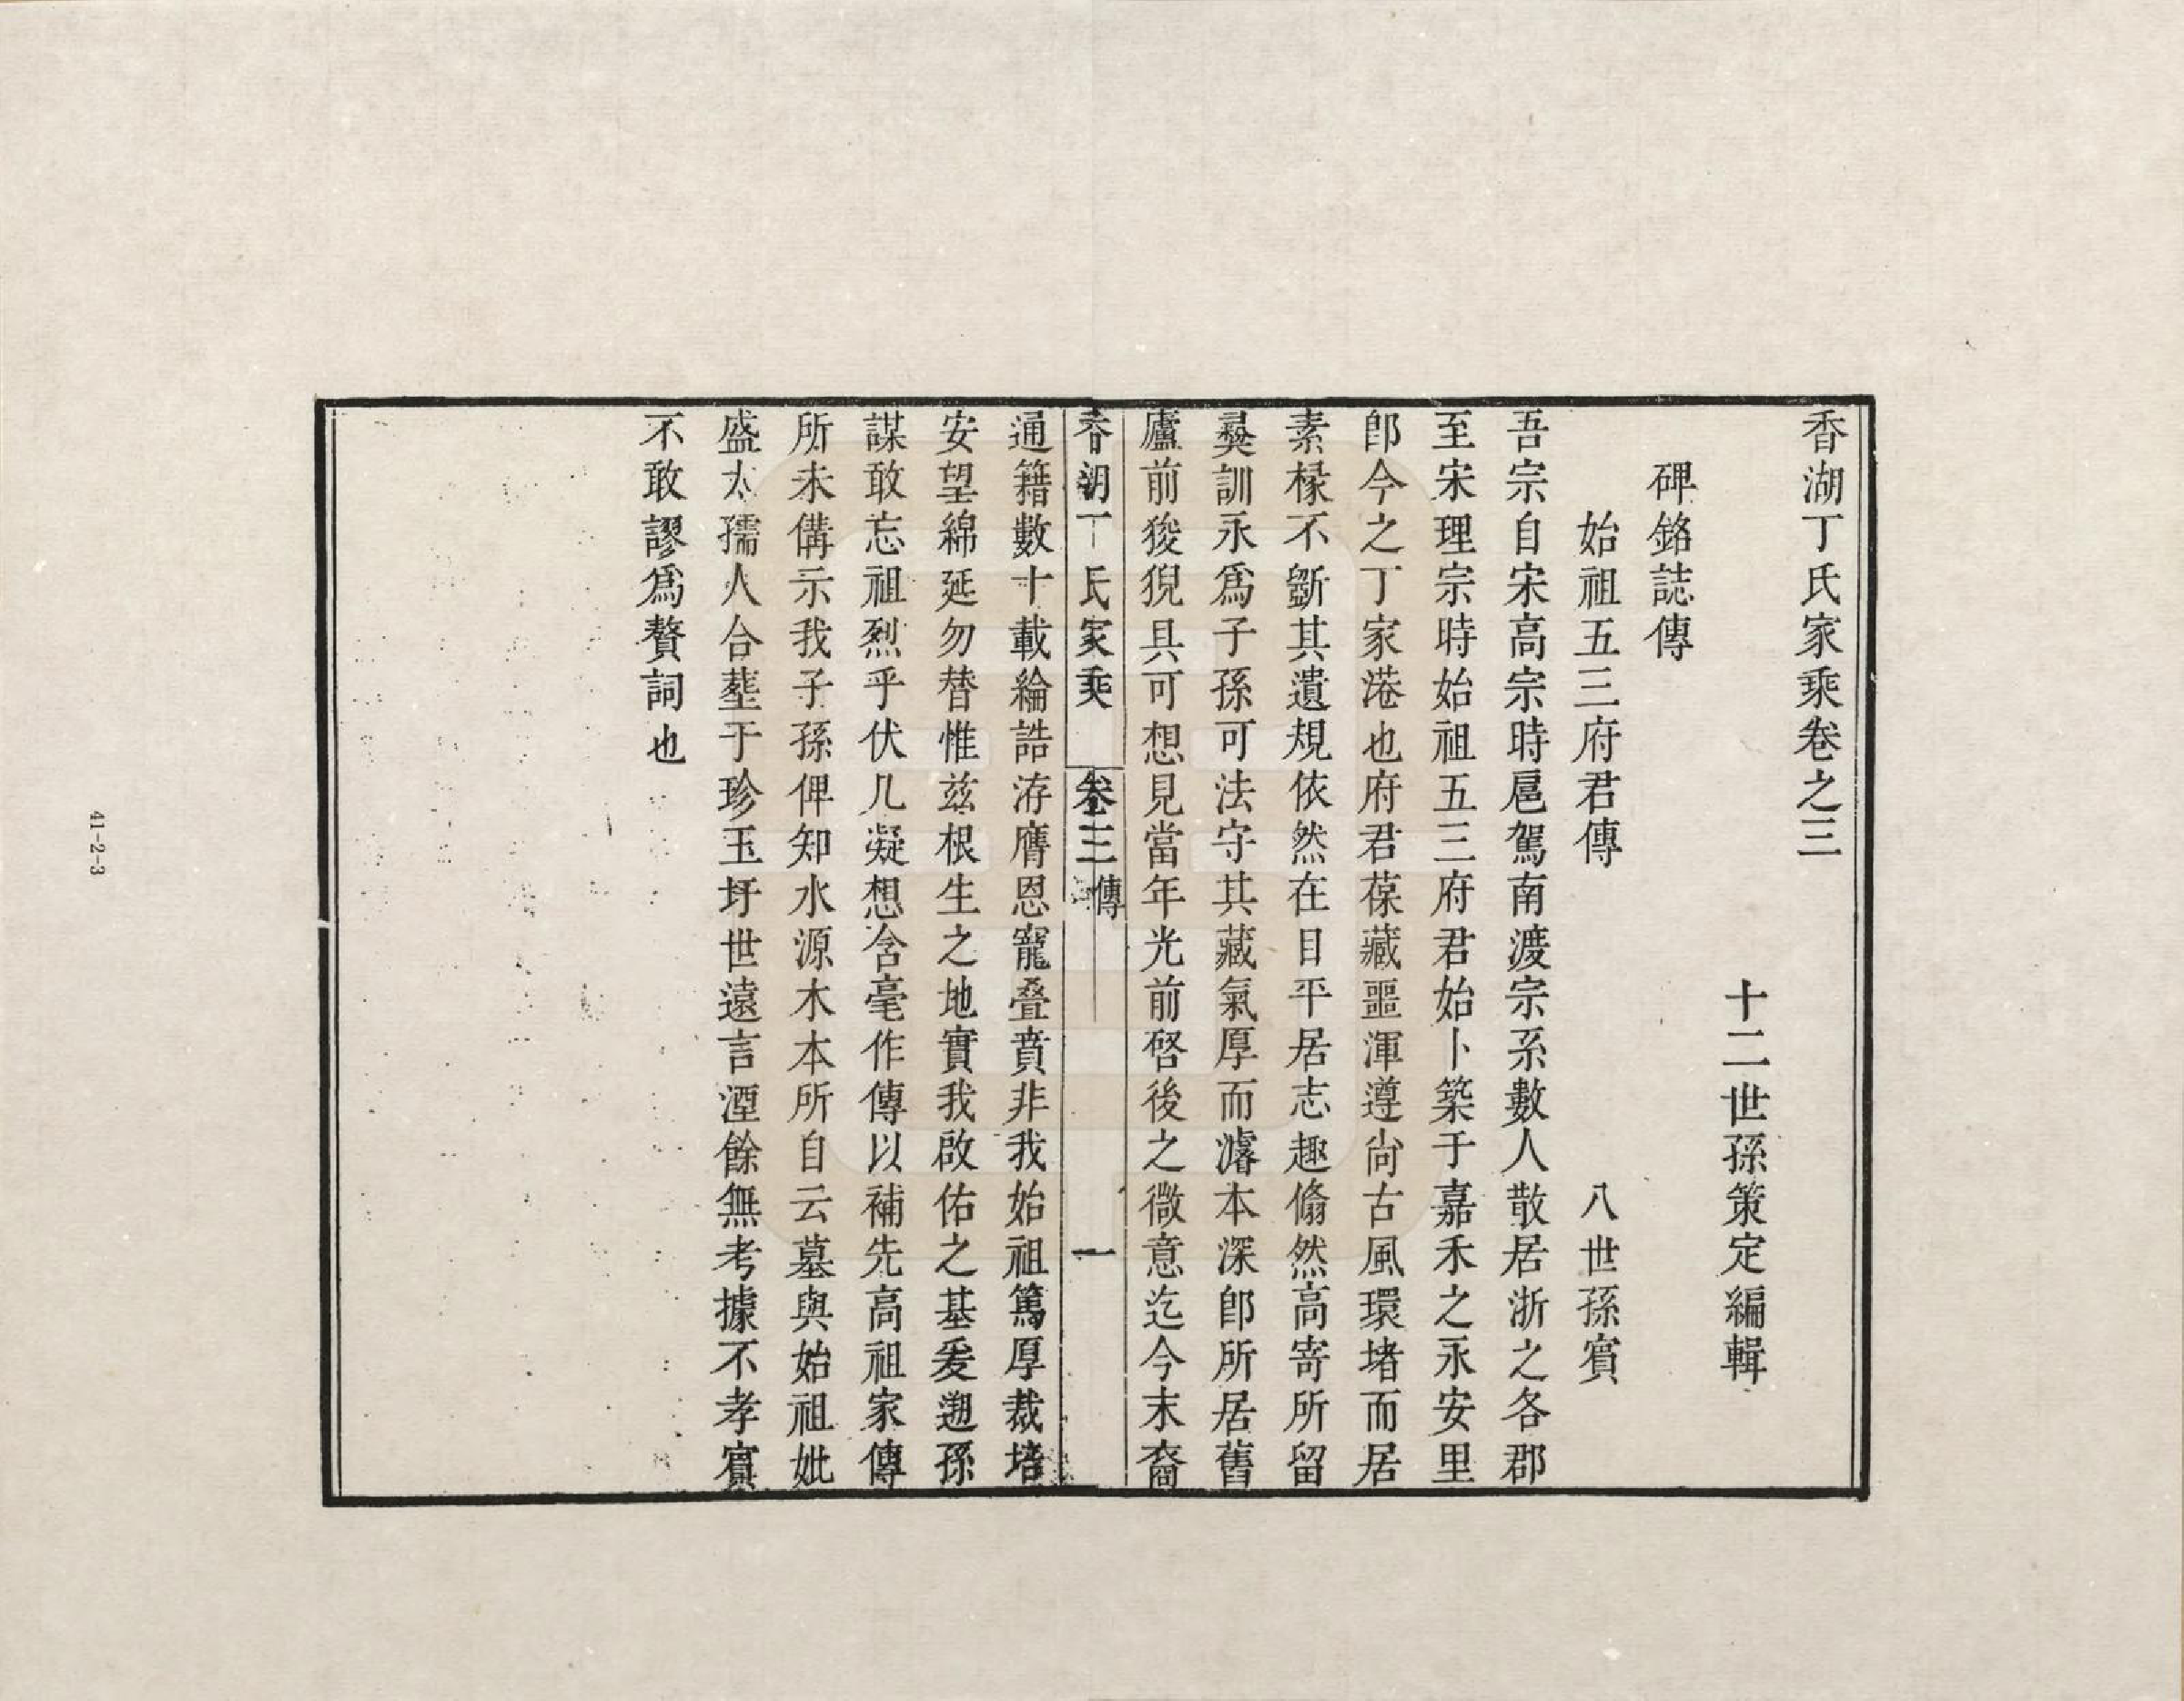 香湖丁氏家乘卷之三
十二世孫策定編輯
碑銘誌傳
始祖五三府君傳 八世孫賓
吾宗自宋高宗時扈駕南渡宗系數人散居浙之各郡
至宋理宗時始祖五三府君始卜築于嘉禾之永安里
卽今之丁家港也府君葆藏噩渾遵尙古風環堵而居
素椽不斵其遺規依然在目平居志趣翛然高寄所留
彝訓永爲子孫可法守其藏氣厚而濬本深卽所居舊
廬前狻猊具可想見當年光前啓後之微意迄今末裔
香湖丁氏家乘 卷三 傳 一
通籍數十載綸誥洊膺恩寵叠賁非我始祖篤厚栽培
安望綿延勿替惟茲根生之地實我啟佑之基爰遡孫
謀敢忘祖烈乎伏几凝想含毫作傳以補先高祖家傳
所未備示我子孫俾知水源木本所自云墓與始祖妣
盛太孺人合塟于珍玉圩世遠言湮餘無考據不孝賓
不敢謬爲贅詞也
41-2-3